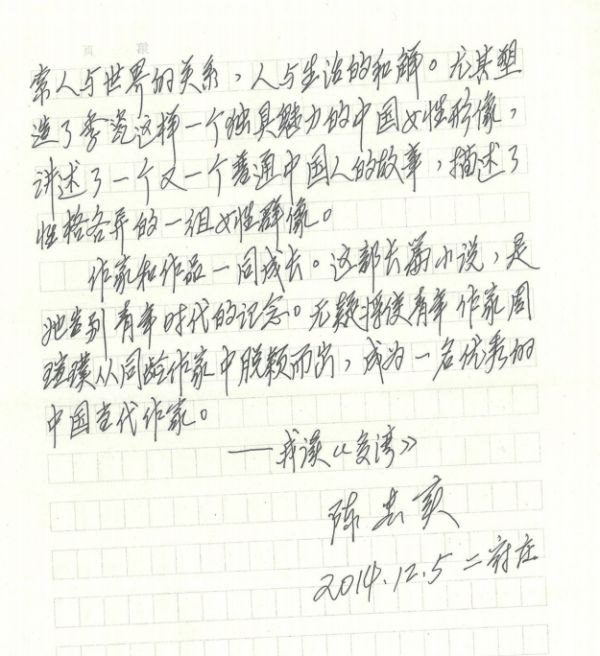 页 段
索人与世界的关系，人与生活的和解。尤其塑
造了季瓷这样一个独具魅力的中国女性形像，
讲述了一个又一个普通中国人的故事，描述了
性格各异的一组女性群像。
作家和作品一同成长。这部长篇小说，是
她告别青年时代的记念。无疑将使青年作家周
瑄璞从同龄作家中脱颖而出，成为一名优秀的
中国当代作家。
——我读《多湾》
陈忠实
2014.12.5 二府庄